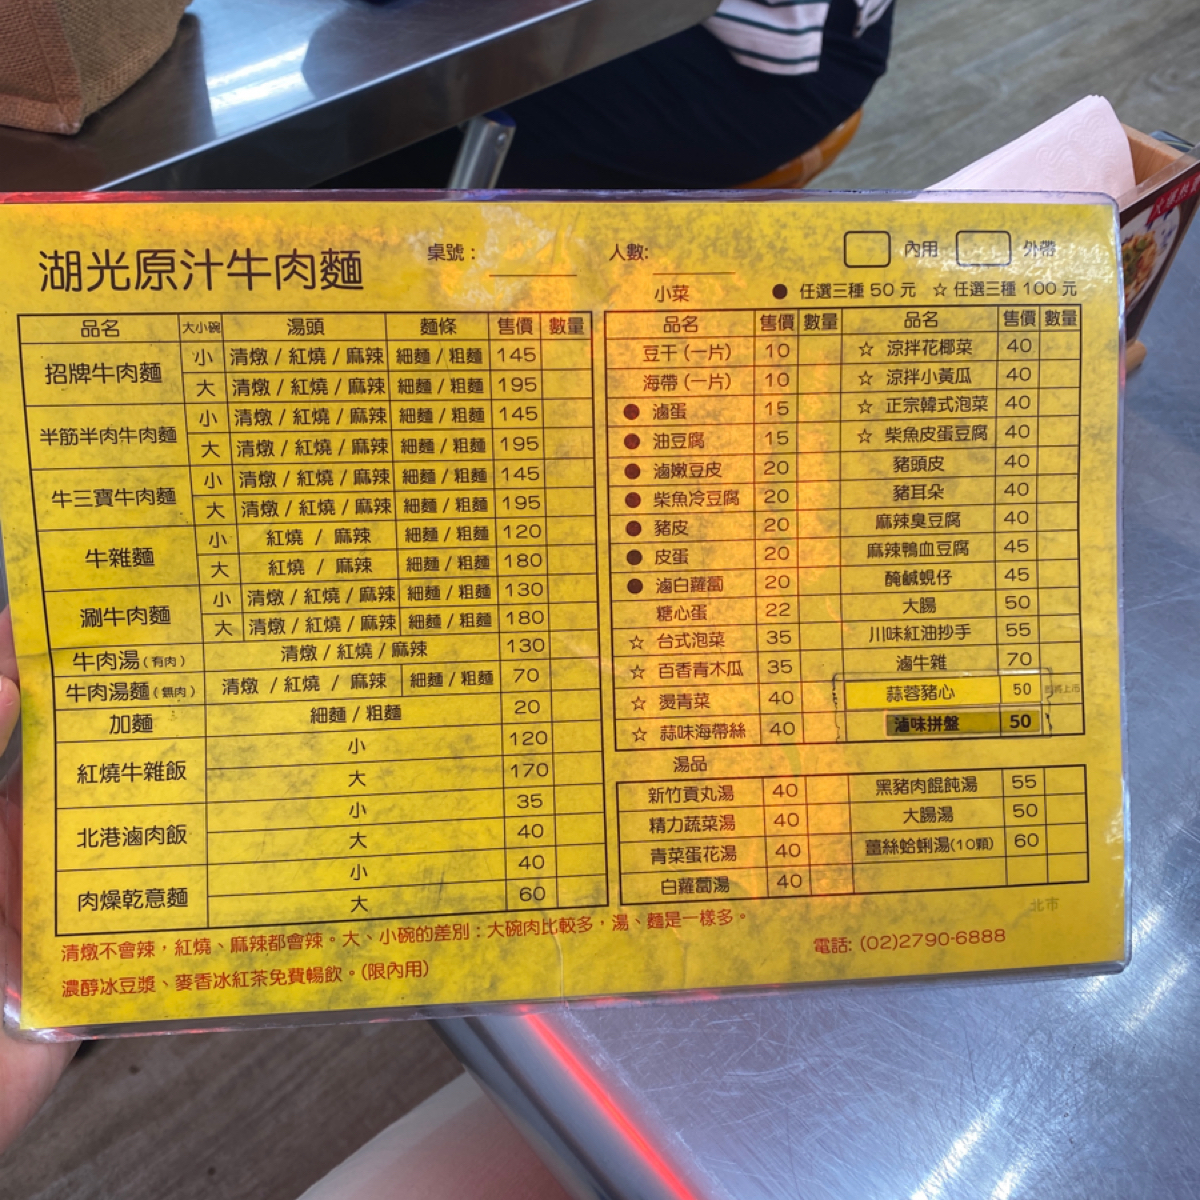 湖光原汁牛肉麵
桌號：
人數:
內用
外帶
小菜
● 任選三種 50 元 ☆ 任選三種 100 元
品名 大小碗 湯頭 麵條 售價 數量
招牌牛肉麵
小 清燉 / 紅燒 / 麻辣 細麵 / 粗麵 145
大 清燉 / 紅燒 / 麻辣 細麵 / 粗麵 195
半筋半肉牛肉麵
小 清燉 / 紅燒 / 麻辣 細麵 / 粗麵 145
大 清燉 / 紅燒 / 麻辣 細麵 / 粗麵 195
牛三寶牛肉麵
小 清燉 / 紅燒 / 麻辣 細麵 / 粗麵 145
大 清燉 / 紅燒 / 麻辣 細麵 / 粗麵 195
牛雜麵
小 紅燒 / 麻辣 細麵 / 粗麵 120
大 紅燒 / 麻辣 細麵 / 粗麵 180
涮牛肉麵
小 清燉 / 紅燒 / 麻辣 細麵 / 粗麵 130
大 清燉 / 紅燒 / 麻辣 細麵 / 粗麵 180
牛肉湯(有肉) 清燉 / 紅燒 / 麻辣 130
牛肉湯麵(無肉) 清燉 / 紅燒 / 麻辣 細麵 / 粗麵 70
加麵 細麵 / 粗麵 20
紅燒牛雜飯
小 120
大 170
北港滷肉飯
小 35
大 40
肉燥乾意麵
小 40
大 60
品名 售價 數量 品名 售價 數量
豆干 (一片) 10 ☆ 涼拌花椰菜 40
海帶 (一片) 10 ☆ 涼拌小黃瓜 40
● 滷蛋 15 ☆ 正宗韓式泡菜 40
● 油豆腐 15 ☆ 柴魚皮蛋豆腐 40
● 滷嫩豆皮 20 豬頭皮 40
● 柴魚冷豆腐 20 豬耳朵 40
● 豬皮 20 麻辣臭豆腐 40
● 皮蛋 20 麻辣鴨血豆腐 45
● 滷白蘿蔔 20 醃鹹蜆仔 45
糖心蛋 22 大腸 50
☆ 台式泡菜 35 川味紅油抄手 55
☆ 百香青木瓜 35 滷牛雜 70
☆ 燙青菜 40 蒜蓉豬心 50
☆ 蒜味海帶絲 40 滷味拼盤 50
湯品
新竹貢丸湯 40 黑豬肉餛飩湯 55
精力蔬菜湯 40 大腸湯 50
青菜蛋花湯 40 薑絲蛤蜊湯(10顆) 60
白蘿蔔湯 40
北市
清燉不會辣，紅燒、麻辣都會辣。大、小碗的差別：大碗肉比較多，湯、麵是一樣多。
電話: (02)2790-6888
濃醇冰豆漿、麥香冰紅茶免費暢飲。(限內用)